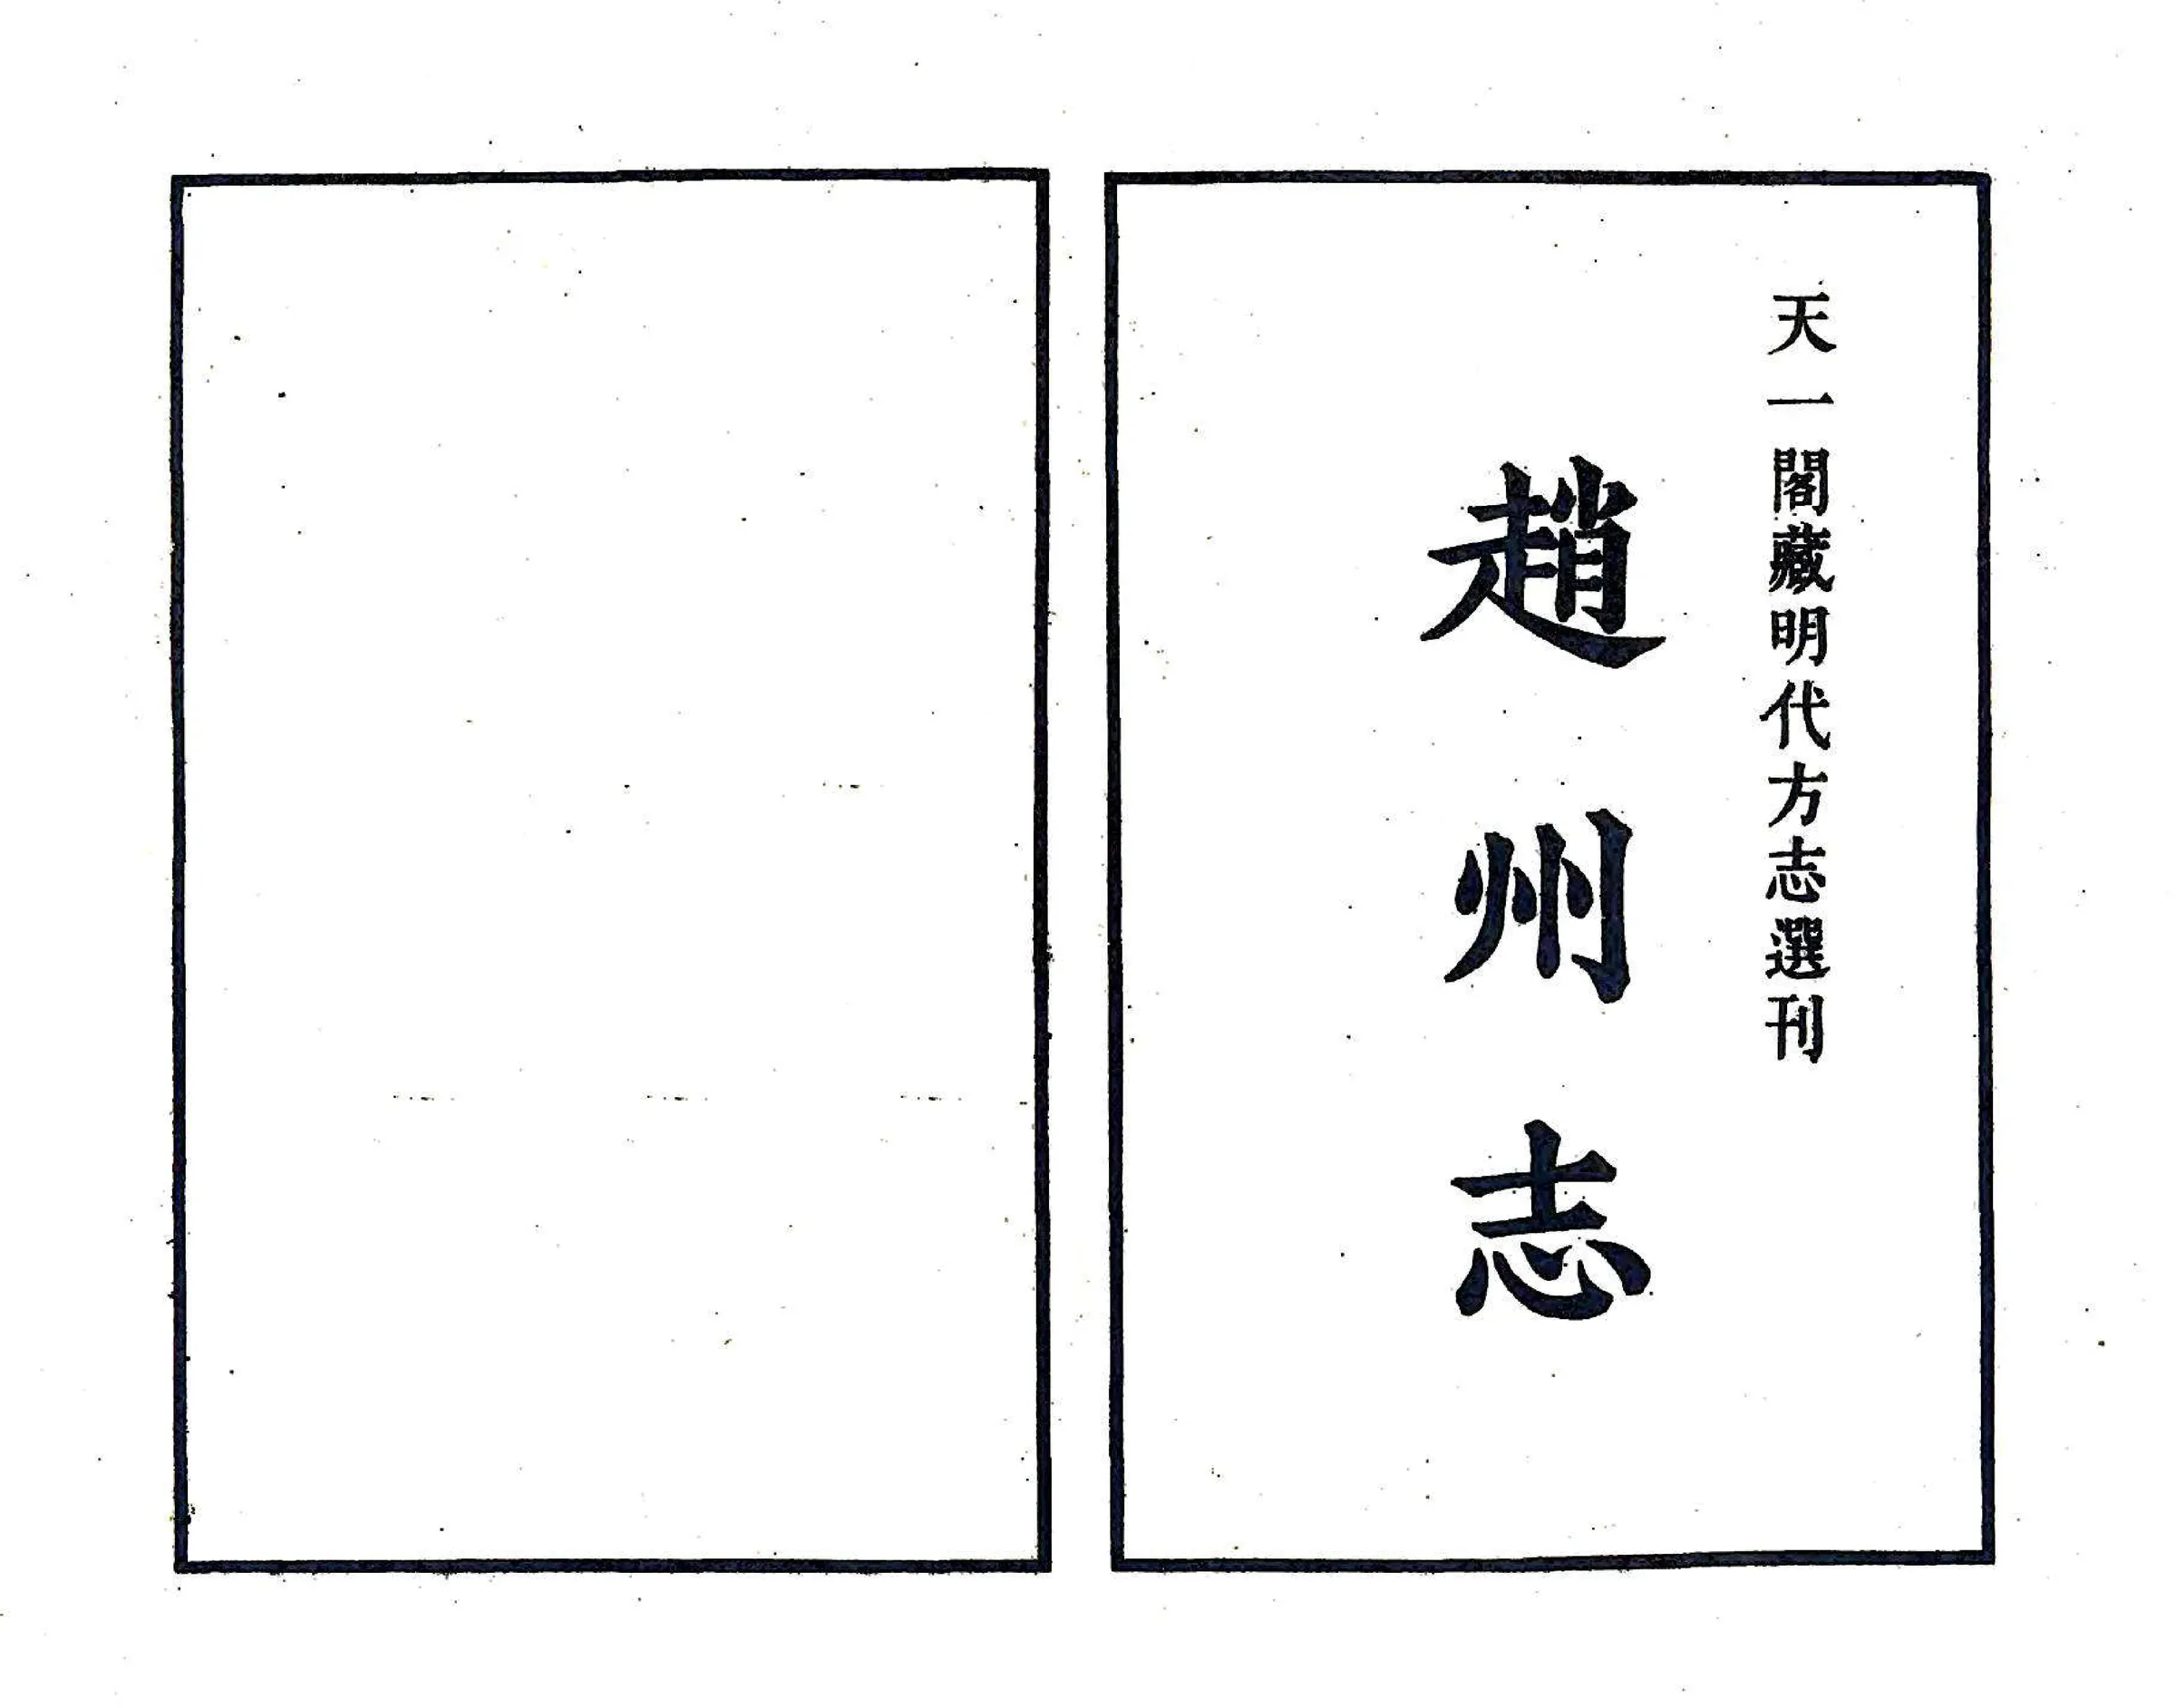 天一閣藏明代方志選刊
趙州志